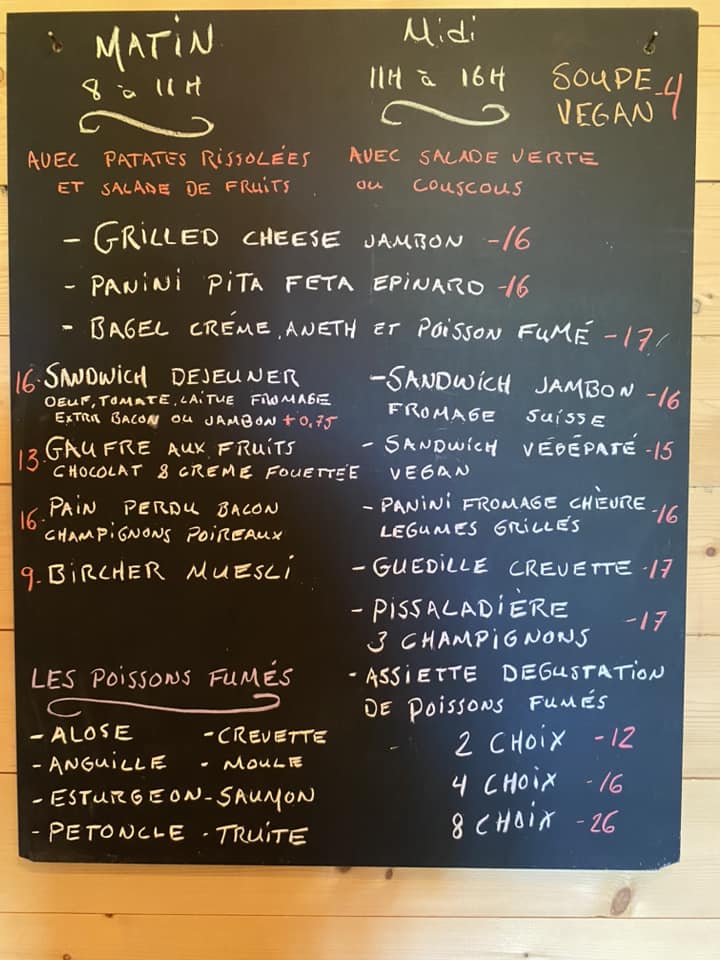 MATIN
8 à 11H
Midi
11H à 16H
SOUPE -4
VEGAN
AVEC PATATES RISSOLÉES
ET SALADE DE FRUITS
AVEC SALADE VERTE
OU COUSCOUS
- GRILLED CHEESE JAMBON -16
- PANINI PITA FETA EPINARD -16
- BAGEL CRÉME, ANETH ET POISSON FUMÉ -17
16. SANDWICH DEJEUNER
OEUF, TOMATE, LAITUE FROMAGE
EXTRA BACON OU JAMBON +0,75
13. GAUFRE AUX FRUITS
CHOCOLAT & CREME FOUETTÉE
16. PAIN PERDU BACON
CHAMPIGNONS POIREAUX
9. BIRCHER MUESLI
- SANDWICH JAMBON -16
FROMAGE SUISSE
- SANDWICH VÉGÉPATÉ -15
VEGAN
- PANINI FROMAGE CHÈVRE -16
LEGUMES GRILLÉS
- GUEDILLE CREVETTE -17
- PISSALADIÈRE -17
3 CHAMPIGNONS
- ASSIETTE DEGUSTATION
DE POISSONS FUMÉS
2 CHOIX -12
4 CHOIX -16
8 CHOIX -26
LES POISSONS FUMÉS
- ALOSE
- ANGUILLE
- ESTURGEON
- PETONCLE
- CREVETTE
- MOULE
- SAUMON
- TRUITE